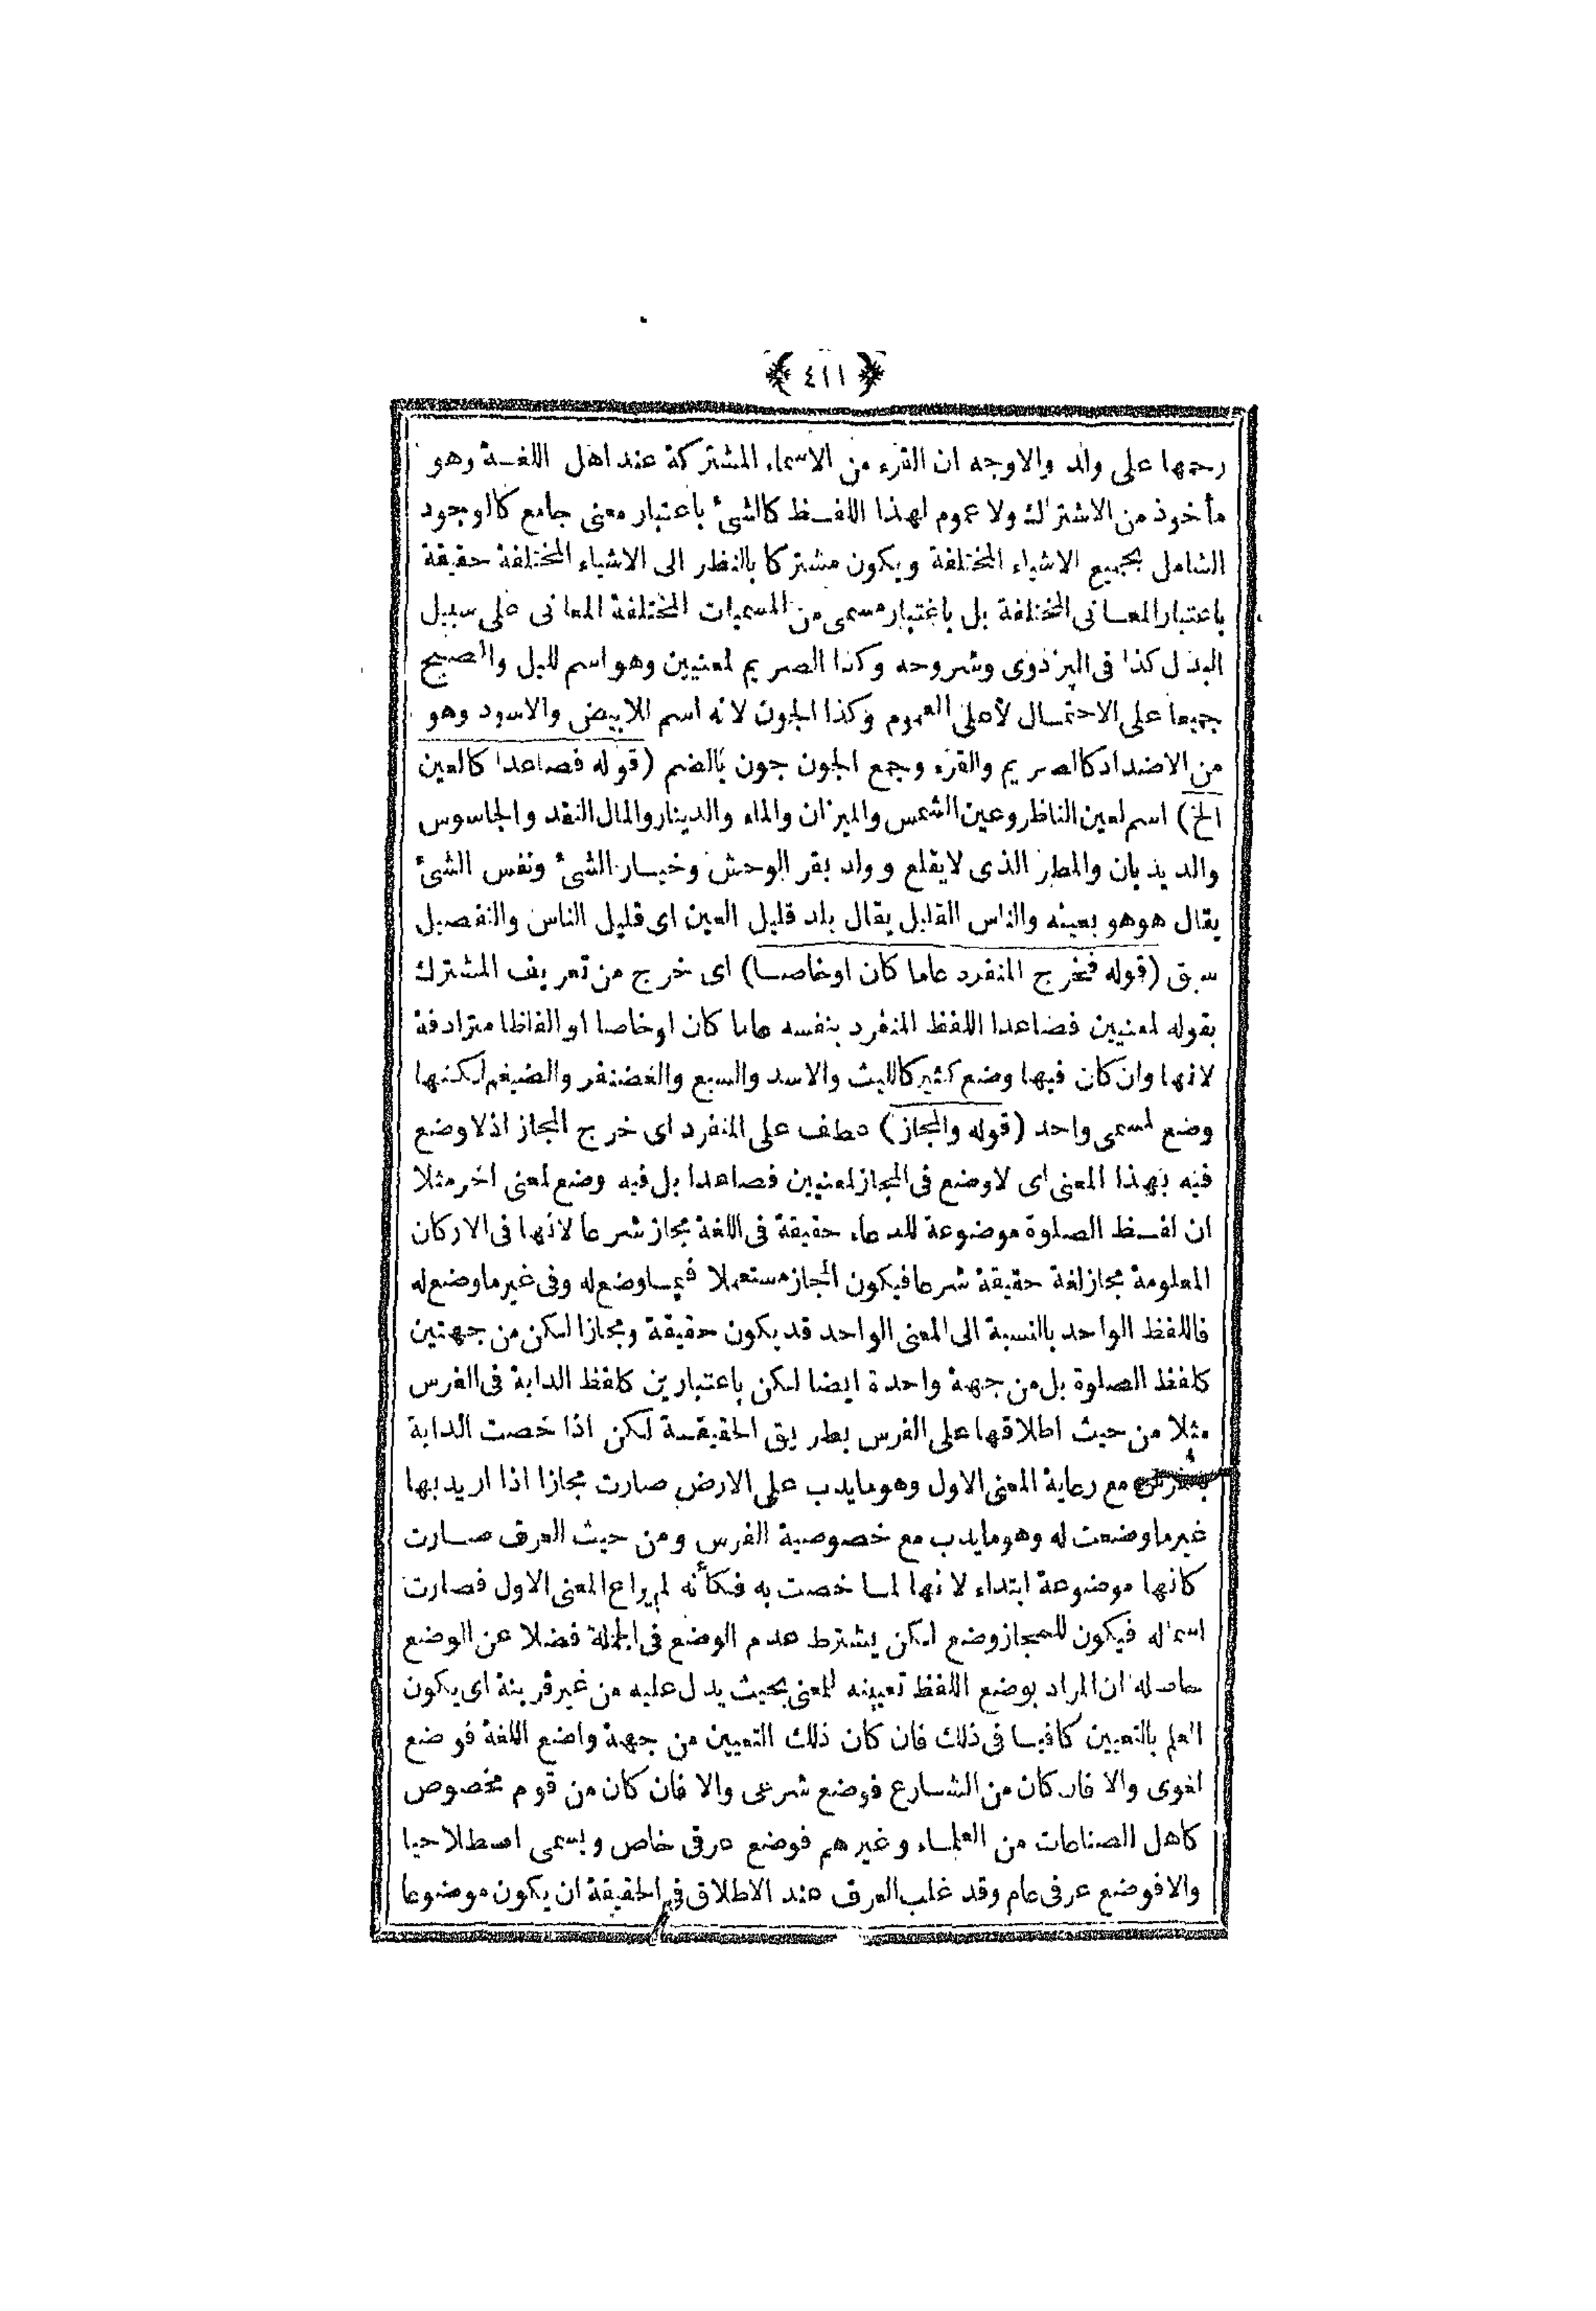 ﴿ ٤١١ ﴾
رحمها على ولد والاوجه ان القرء من الاسماء المشتركة عند اهل اللغة وهو
مأخوذ من الاشتراك ولا عموم لهذا اللفظ كالشئ باعتبار معنى جامع كالوجود
الشامل بجميع الاشياء المختلفة ويكون مشتركا بالنظر الى الاشياء المختلفة حقيقة
باعتبار المعانى المختلفة بل باعتبار مسمى من المسميات المختلفة المعانى على سبيل
البدل كذا فى البزدوى وشروحه وكذا الصريم لمعنيين وهو اسم لليل والصبح
جميعا على الاحتمال لأعلى العموم وكذا الجون لانه اسم للابيض والاسود وهو
من الاضداد كالصريم والقرء وجمع الجون جون بالضم (قوله فصاعدا كالعين
الخ) اسم لعين الناظر وعين الشمس والميزان والماء والدينار والمال النقد والجاسوس
والديدبان والمطر الذى لايقلع وولد بقر الوحش وخيار الشئ ونفس الشئ
يقال هو هو بعينه والناس القليل يقال بلد قليل العين اى قليل الناس والتفصيل
سبق (قوله فخرج المنفرد عاما كان اوخاصا) اى خرج من تعريف المشترك
بقوله لمعنيين فصاعدا اللفظ المنفرد بنفسه عاما كان اوخاصا او الفاظا مترادفة
لانها وان كان فيها وضع كثير كالليث والاسد والسبع والغضنفر والضيغم لكنها
وضع لمسمى واحد (قوله والمجاز) عطف على المنفرد اى خرج المجاز اذلاوضع
فيه بهذا المعنى اى لاوضع فى المجاز لمعنيين فصاعدا بل فيه وضع لمعنى اخر مثلا
ان لفظ الصلوة موضوعة للدعاء حقيقة فى اللغة مجاز شرعا لانها فى الاركان
المعلومة مجاز لغة حقيقة شرعا فيكون المجاز مستعملا فيما وضع له وفى غير ما وضع له
فاللفظ الواحد بالنسبة الى المعنى الواحد قد يكون حقيقة ومجازا لكن من جهتين
كلفظ الصلوة بل من جهة واحدة ايضا لكن باعتبارين كلفظ الدابة فى الفرس
مثلا من حيث اطلاقها على الفرس بطريق الحقيقة لكن اذا خصت الدابة
مع رعاية المعنى الاول وهو مايدب على الارض صارت مجازا اذا اريد بها
غير ما وضعت له وهو مايدب مع خصوصية الفرس ومن حيث العرف صارت
كانها موضوعة ابتداء لانها لما خصت به فكأنه لم يراع المعنى الاول فصارت
اسما له فيكون للمجاز وضع لكن يشترط عدم الوضع فى الجملة فضلا عن الوضع
حاصله ان المراد بوضع اللفظ تعيينه للمعنى بحيث يدل عليه من غير قرينة اى يكون
العلم بالتعيين كافيا فى ذلك فان كان ذلك التعيين من جهة واضع اللغة فوضع
لغوى والا فان كان من الشارع فوضع شرعى والا فان كان من قوم مخصوص
كاهل الصناعات من العلماء وغيرهم فوضع عرفى خاص ويسمى اصطلاحيا
والا فوضع عرفى عام وقد غلب العرف عند الاطلاق فى الحقيقة ان يكون موضوعا